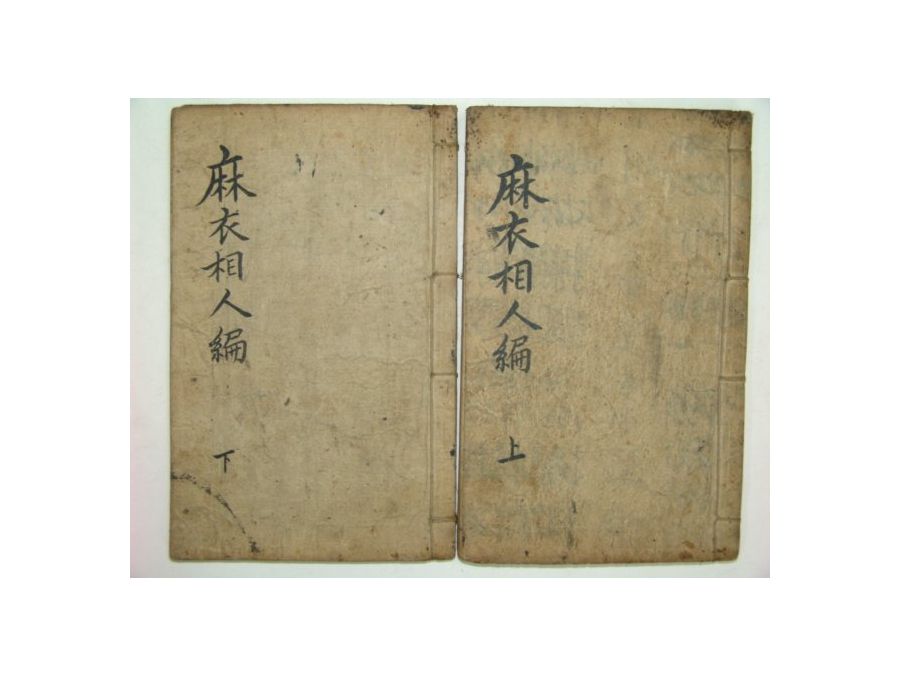 麻衣相人編 上
麻衣相人編 下